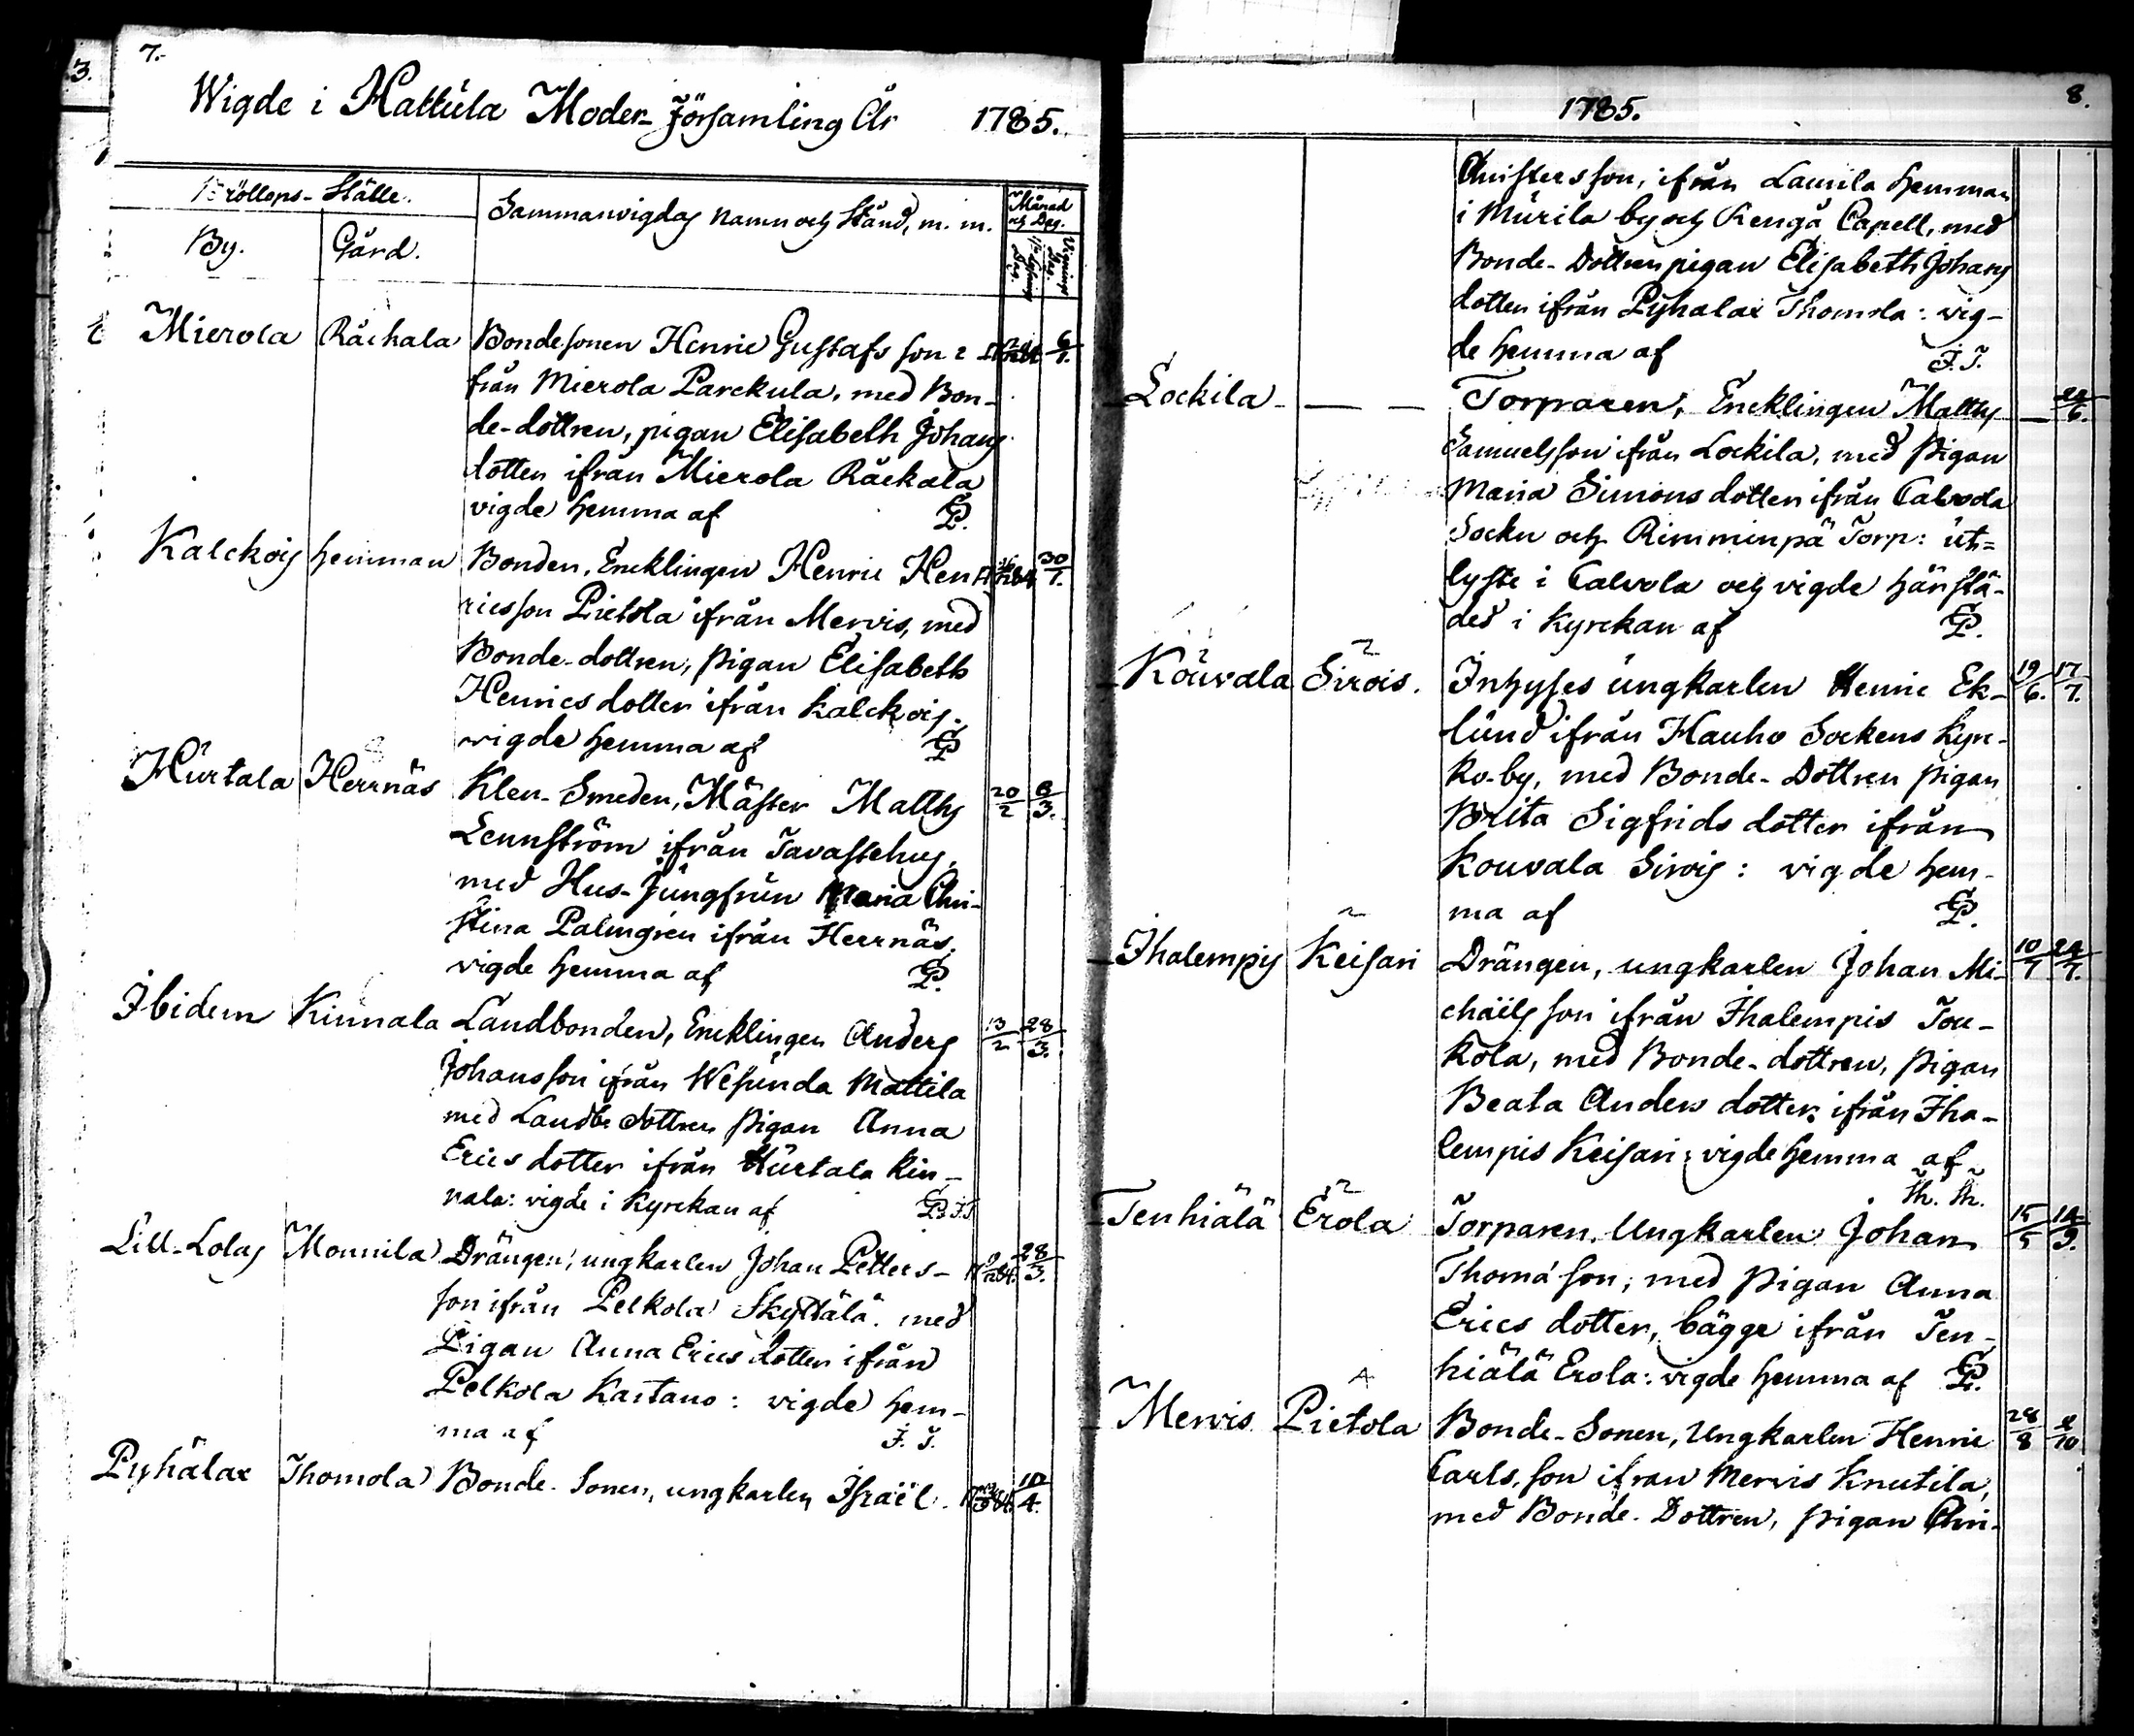 3.
7.
Wigde i Hattula Moder-Församling År 1785.
Bröllops-Ställe.
Sammanvigdas namn och Stånd, m. m.
Månad och Dag.
By.
Gård.
Mierola Räckala Bondesonen Henric Gustafs son i- 6/1.
från Mierola Parckula, med Bon-
de-dottren, pigan Elisabeth Johans
dotter ifrån Mierola Räckala
vigde hemma af P.
Kalckois hemman Bonden, Encklingen Henric Hen 30/1.
ricsson Pietola ifrån Mervis, med
Bonde-dottren, pigan Elisabeth
Henrics dotter ifrån Kalckois.
vigde hemma af P
Hurtala Herrnäs Klen-Smeden, Mäster Matths 20/2 6/3.
Lennström ifrån Tavastehus,
med Hus-Jungfrun Maria Chri-
stina Palmgren ifrån Herrnäs.
vigde hemma af P.
Ibidem Kinnala Landbonden, Encklingen Anders 13/2 28/3.
Johansson ifrån Wesunda Mattila
med Landbo dottren pigan Anna
Erics dotter ifrån Hurtala Kin-
nala: vigde i Kyrckan af P. J.T.
Lill-Lolas Monnila Drängen, ungkarlen Johan Petters- 28/3.
son ifrån Pelkola Skyttälä. med
Pigan Anna Erics dotter ifrån
Pelkola Kastano: vigde hem-
ma af J. T.
Pyhälax Thomola Bonde-Sonen, ungkarlen Israël 10/4.
1785.
8.
Christersson, ifrån Laurila hemman
i Murila by och Rengå Capell, med
Bonde-Dottren pigan Elisabeth Johans
dotter ifrån Pyhalax Thomola: vig-
de hemma af J. T.
Lockila - — — Torparen, Encklingen Matths — 24/6.
Samuelsson ifrån Lockila, med pigan
Maria Simons dotter ifrån Calvola
Sockn och Rimminpä Torp: ut-
lyste i Calvola och vigde härstä-
des i Kyrckan af P.
Kouvala Sirois. Inhyses ungkarlen Henric Ek- 19/6. 17/7.
lund ifrån Hauho Sockens Kyrc-
ko-by, med Bonde-Dottren pigan
Brita Sigfrids dotter ifrån
Kouvala Sirois: vigde hem-
ma af P.
Ihalempis Keisari Drängen, ungkarlen Johan Mi- 10/7 24/7.
chaëls son ifrån Ihalempis Tou-
kola, med Bonde-dottren, pigan
Beata Anders dotter ifrån Iha-
lempis Keisari: vigde hemma af
Th. Th.
Tenhiälä Erola Torparen, Ungkarlen Johan 15/5 14/9.
Thomæ son, med pigan Anna
Erics dotter, bägge ifrån Ten-
hiälä Erola: vigde hemma af P.
Mervis Pietola Bonde-Sonen, Ungkarlen Henric 28/8 2/10
Carls son ifrån Mervis Knutila,
med Bonde-Dottren, pigan Chri-